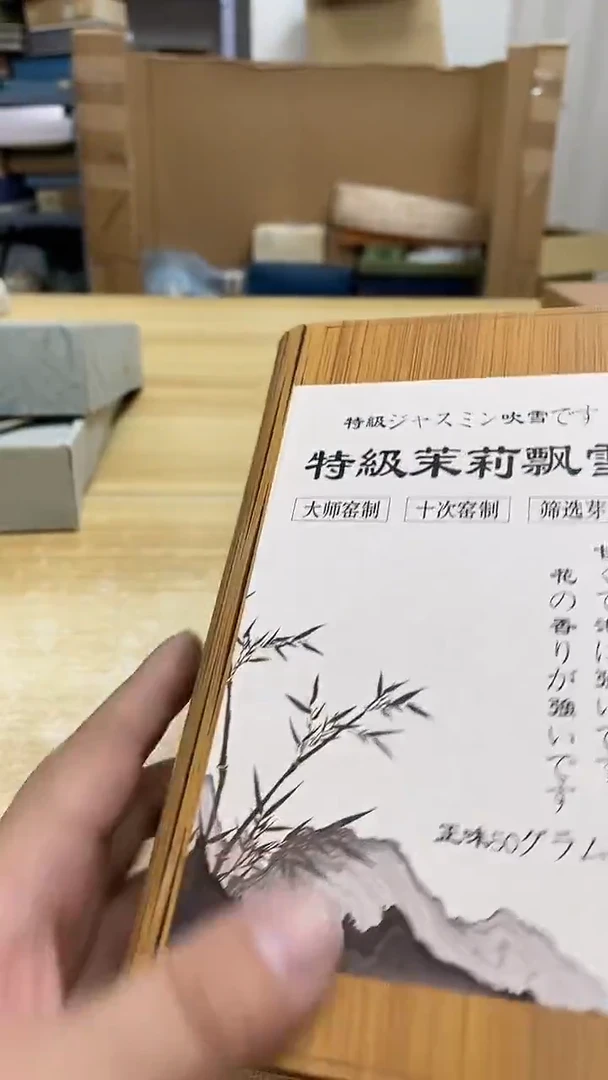 特級ジャスミン吹雪です
特級茉莉飄雪
大师窑制 十次窑制 筛选芽
花の香りが強いです
正味50グラム